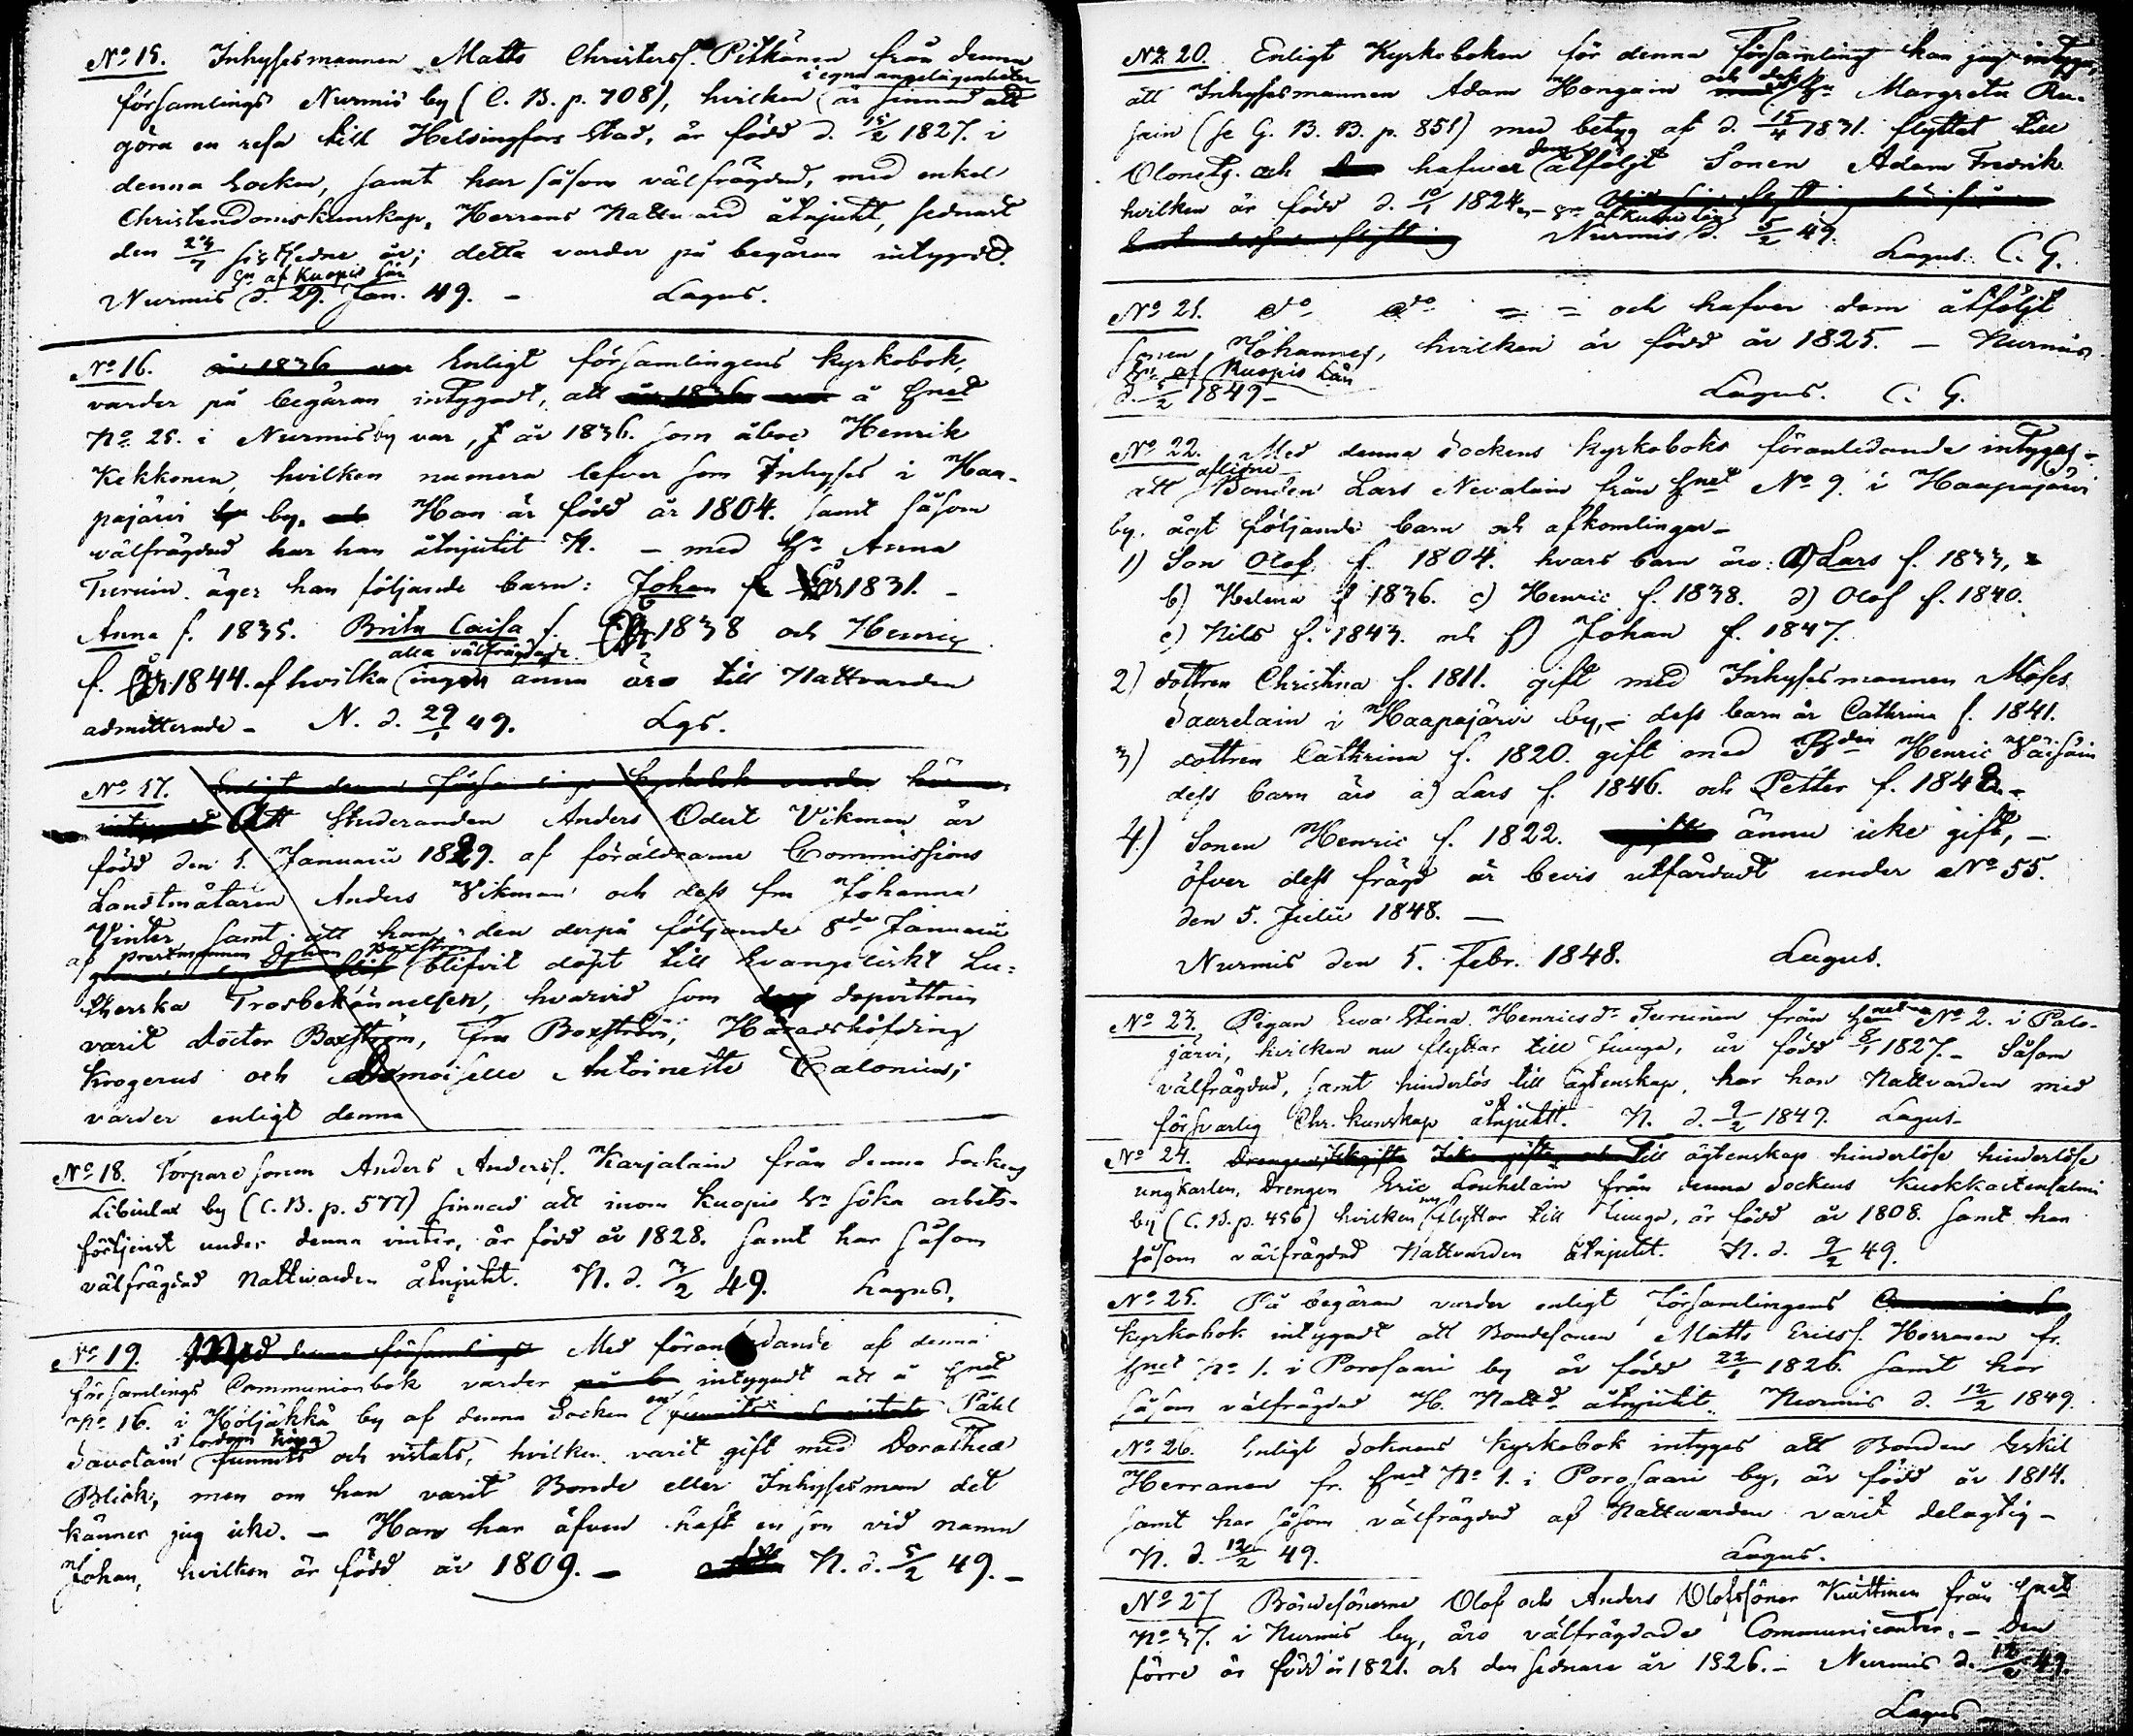 No 15. Inhysesmannen Matts Christerss. Pitkänen från denna
i egna angelägenheter
församlings Nurmis by (C. B. p. 708), hvilken är sinnad att
göra en resa till Helsingfors Stad, är född d. 15/2 1827. i
denna Socken, samt har såsom välfrägdad, med enkel
Christendomskunskap, Herrans Nattvard åtnjutit, sednast
den sistledne år; detta varder på begäran intygadt.
Gn af Kuopio Län
Nurmis d. 29. Jan. 49. - Lagus.
No 16. år 1836 var Enligt församlingens kyrkobok,
varder på begäran intygadt, att år 1836 var å Hnet
No 25. i Nurmis by var, år 1836. som åboe Henrik
Kekkonen, hvilken numera lefver som Inhyses i Haa-
pajärvi by. och Han är född år 1804. samt såsom
välfrägdad har han åtnjutit N. - med Hu Anna
Turuin. äger han följande barn: Johan f. år 1831. -
Anna f. 1835. Brita Caisa f. 1838 och Henric
alla välfrägdade
f. år 1844. af hvilka ingen annu äro till Nattvarden
admitterade - N. d. 29/1 49. Lgs.
No 17. Enligt denna församlings kyrkobok varder härmed
intygadt Att Studeranden Anders Odert Vikman är
född den 1. Januarii 1829. af föräldrarne Commissions
Landtmätaren Anders Vikman och dess fru Johanna
Vinter samt att han den derpå följande 8de Januarii
af prestmannen Johan Boxström
blifvit döpt till Evangeliskt Lu-
therska Trosbekännelsen, hvarvid som dopvittnen
varit Doctor Boxström, Fru Boxström, Häradshöfding
Krogerus och Demoiselle Antoinette Calonius;
varder enligt denna
No 18. Torpare sonen Anders Anderss. Karjalain från denna Sockens
Libinlax by (C. B. p. 577) sinnad att inom Kuopio Ln söka arbets-
förtjenst under denna vinter, är född år 1828. samt har såsom
välfrägdad Nattvarden åtnjutit. N. d. 3/2 49. Lagus.
No 19. Med denna församlings Med föranledande af denna
församlings Communionbok varder på b intygadt att å Hnet
No 16. i Höljäkkä by af denna Socken en funnits och vistats Påhl
i fordom tima
Savolain funnits och vistats, hvilken varit gift med Dorothea
Blick, men om han varit Bonde eller Inhysesman det
känner jag icke. - Han har äfven haft en son vid namn
Johan, hvilken är född år 1809. - N. d. 5/2 49. -
No 20. Enligt Kyrkoboken för denna Församling kan jag intyga,
att Inhysesmannen Adam Hongain och dess Hu Margreta Ru-
sain (se G. B. B. p. 851) med betyg af d. 15/4 1831. flyttat till
Olonetz. och hafver dem åtföljt Sonen Adam Fredrik
hvilken är född d. 10/1 1824. -
Gn af Kuopio Län
Nurmis d. 5/2 49.
Lagus. C. G.
No 21. do do = = och hafver dem åtföljt
sonen, Johannes, hvilken är född år 1825. - Nurmis
Gn af Kuopio Län
d. 5/2 1849 - Lagus. C. G.
No 22. Med denna Sockens kyrkoboks föranledande intygas -
aflidne
att Bonden Lars Nevalain från Hnet No 9. i Haapajärvi
by. ägt följande barn och afkomlingar -
1) Son Olof f. 1804. hvars barn äro: a) Lars f. 1833,
b) Helena f 1836. c) Henric f. 1838. d) Olof f. 1840.
e) Nils f. 1843. och f) Johan f. 1847.
2) dottren Christina f. 1811. gift med Inhysesmannen Moses
Saarelain i Haapajärvi by, - dess barn är Cathrina f. 1841.
3) dottren Cathrina f. 1820. gift med Bden Henric Väisäin
dess barn äro a) Lars f. 1846. och Petter f. 1848. -
4) Sonen Henric f. 1822. gift ännu icke gift, -
öfver dess frägd är bevis utfärdadt under No 55.
den 5. Julii 1848. -
Nurmis den 5. Febr. 1848. Lagus.
No 23. Pigan Ewa Stina Henricsdr Turuinen från Hnet No 2. i Palo-
järvi, hvilken nu flyttar till Juuga, är född 8/1 1827. - Såsom
välfrägdad, samt hinderlös till ägtenskap, har hon Nattvarden med
försvarlig Chr. kunskap åtnjutit. N. d. 9/2 1849. Lagus -
No 24. Till ägtenskap hinderlöse hinderlöse
ungkarlen, Drengen Eric Louhelain från denna Sockens Kuokkastensalmi
by (C. B. p. 456) hvilken nu flyttar till Juuga, är född år 1808. samt han
såsom välfrägdad Nattvarden åtnjutit. N. d. 9/2 49.
No 25. På begäran varder enligt Församlingens
kyrkobok intygadt att Bondesonen Matts Ericss. Herranen fr.
Hnet No 1. i Porosaari by är född 22/1 1826. samt har
såsom välfrägdad H. Nattvd åtnjutit. Nurmis d. 12/2 1849.
No 26. Enligt Soknens kyrkobok intygas att Bonden Eskil
Herranen fr. Hnet No 1. i Porosaari by, är född år 1814.
samt har såsom välfrägdad af Nattvarden varit delagtig -
N. d. 12/2 49. Lagus.
No 27 Bondesönerne Olof och Anders Olofssöner Kuittinen från Hnet
No 37. i Nurmis by, äro välfrägdade Communicanter. - Den
förre är född år 1821. och den sednare år 1826. - Nurmis d. 12/2 49.
Lagus